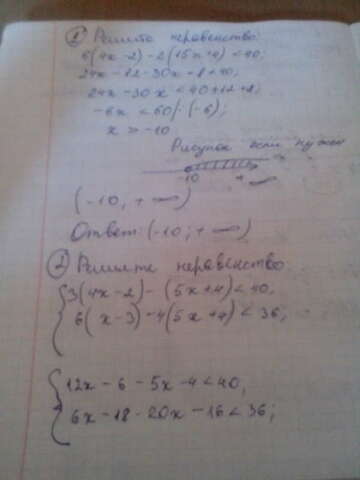 1) Решите неравенство:
6(4x-2)-2(15x+4)<40;
24x-12-30x-8<40;
24x-30x<40+12+8;
-6x<60/·(-6);
x>-10
Рисунок если нужен
-10 +∞
(-10; +∞)
Ответ: (-10; +∞)
2) Решите неравенство
3(4x-2)-(5x+4)<40,
6(x-3)-4(5x+4)<36;
12x-6-5x-4<40,
6x-18-20x-16<36;